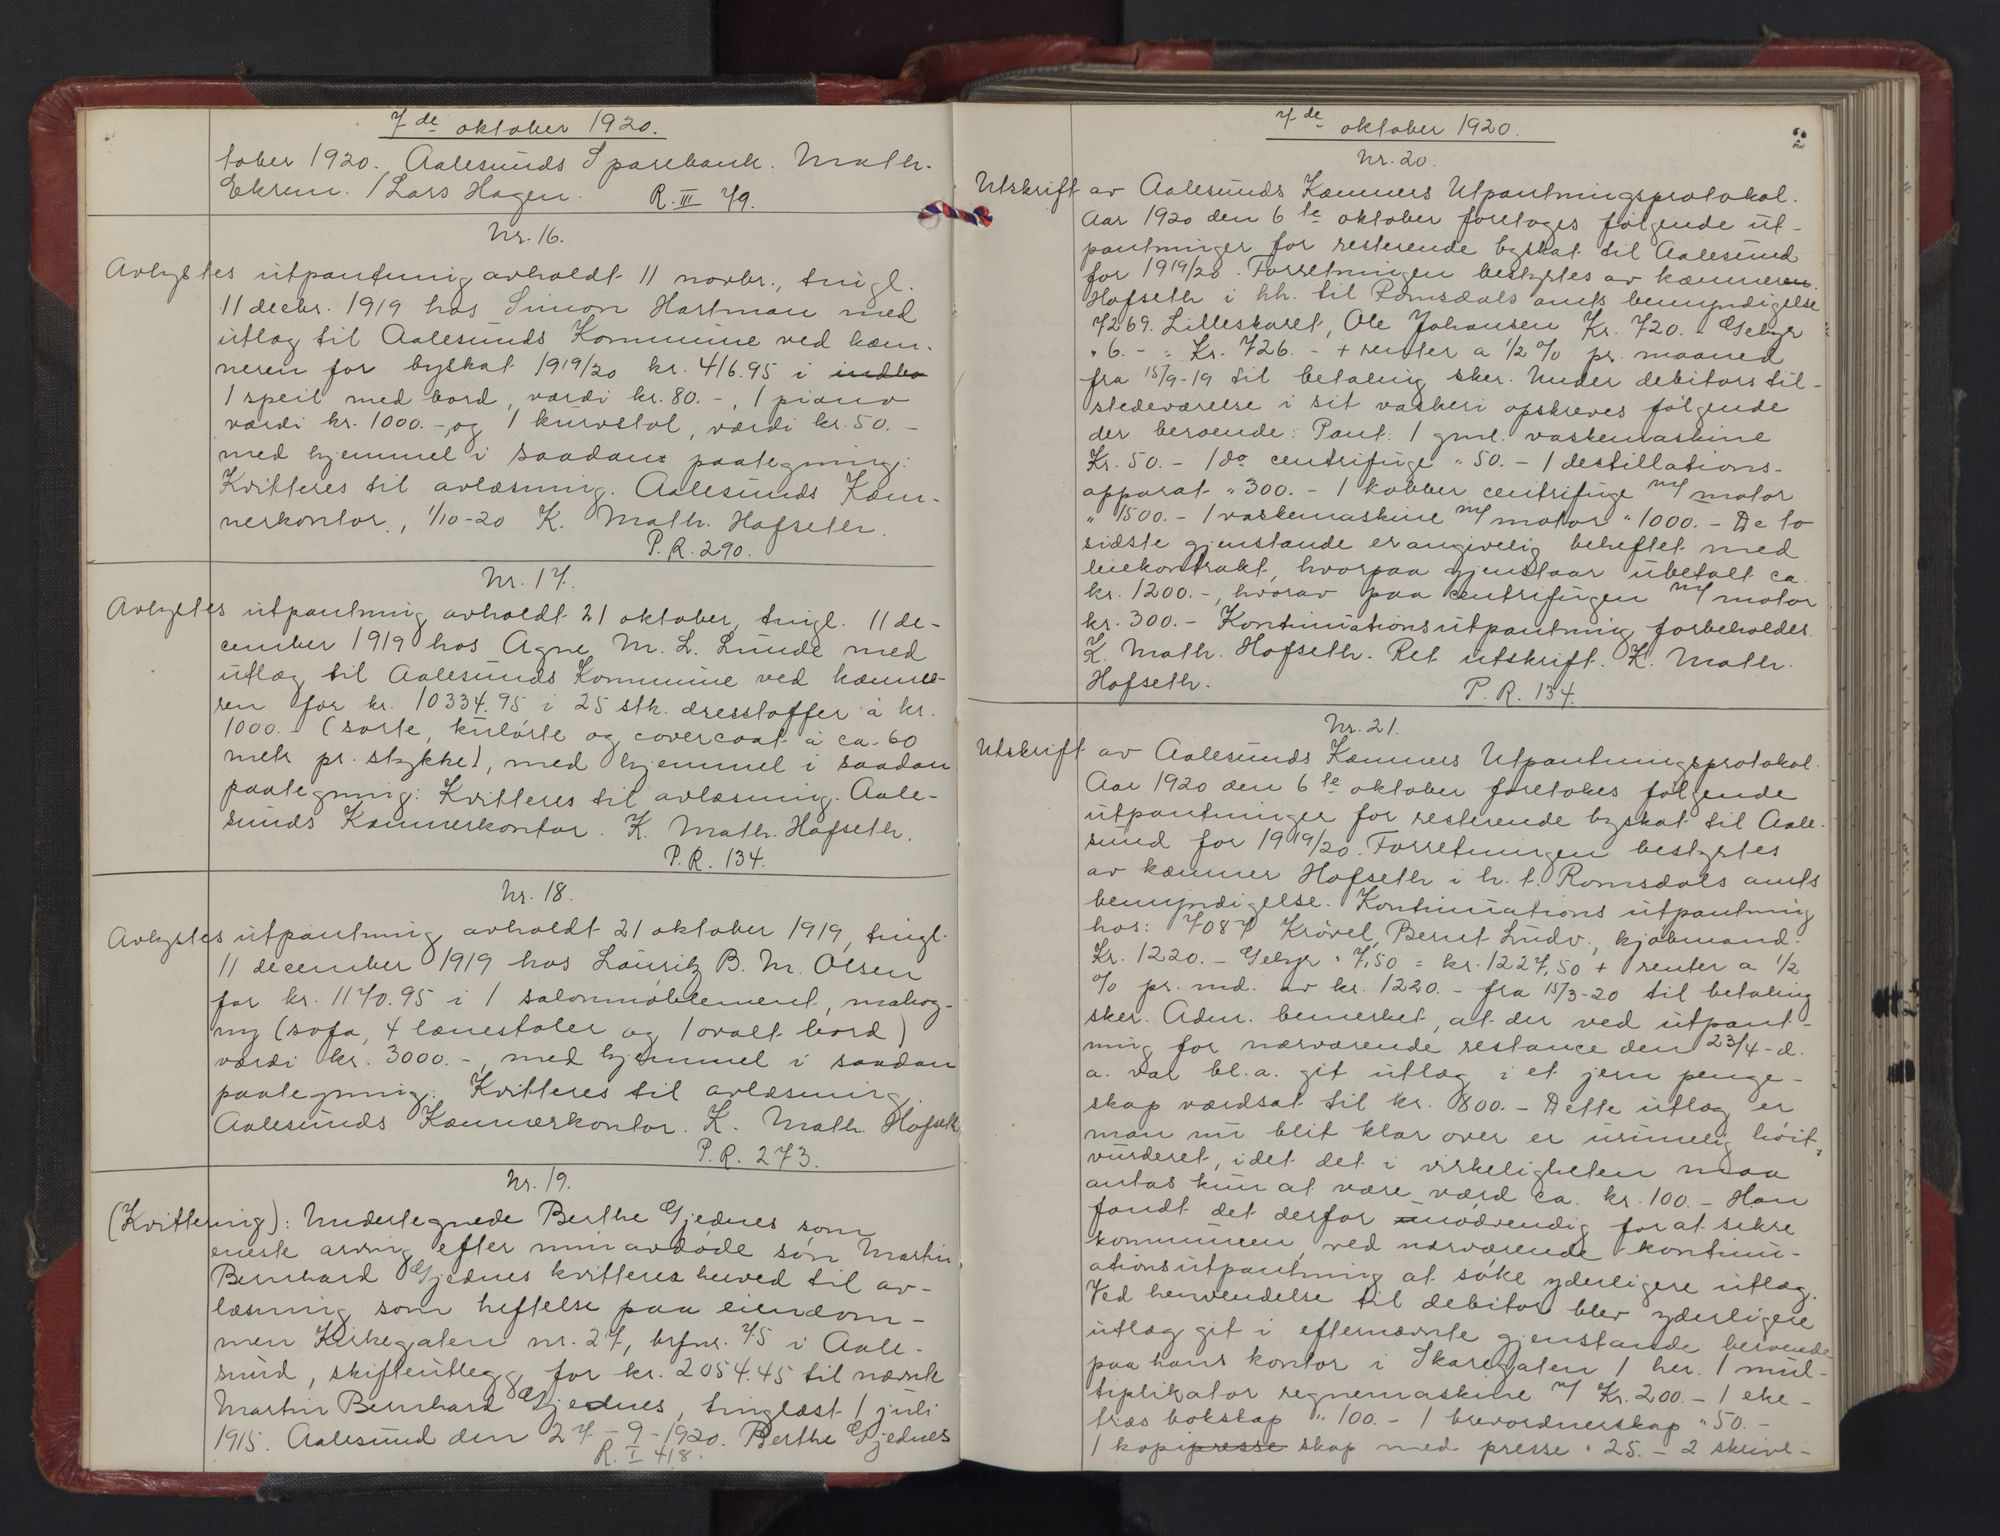 7de oktober 1920.
tober 1920. Aalesunds Sparebank. Math.
Ekrem. / Lars Hagen. R. III 79.
Nr. 16.
Avlystes utpantning avholdt 11 novbr., tingl.
11 decbr. 1919 hos Simon Hartman med
utlæg til Aalesunds Kommune ved kæm-
neren for byskat 1919/20 kr. 416.95 i indbo
1 speil med bord, værdi kr. 80.-, 1 piano
værdi kr. 1000.- og 1 kurvstol, værdi kr. 50.-
med hjemmel i saadan paategning:
Kvitteres til avlæsning. Aalesunds Kæm-
nerkontor, 1/10-20 K. Math. Hofseth.
P. R. 290.
Nr. 17.
Avlystes utpantning avholdt 21 oktober, tingl. 11 de-
cember 1919 hos Agne M. L. Lunde med
utlæg til Aalesunds Kommune ved kæmne-
ren for kr. 10334.95 i 25 stk. dresstoffer à kr.
1000.- (sorte, kulørte og covercoat à ca. 60
metr pr. stykke), med hjemmel i saadan
paategning: Kvitteres til avlæsning. Aale-
sunds Kæmnerkontor. K. Math. Hofseth.
P. R. 134.
Nr. 18.
Avlystes utpantning avholdt 21 oktober 1919, tingl.
11 december 1919 hos Lauritz B. M. Olsen
for kr. 1170.95 i 1 salonmøblement, mahog-
ny (sofa, 4 lænestoler og 1 ovalt bord)
værdi kr. 3000.-, med hjemmel i saadan
paategning: Kvitteres til avlæsning.
Aalesunds Kæmnerkontor. K. Math. Hofseth
P. R. 273.
Nr. 19.
(Kvittering): Undertegnede Berthe Gjednes som
eneste arving efter min avdøde søn Martin
Bernhard Gjednes kvitteres herved til av-
læsning som heftelse paa eiendom-
men Kirkegaten nr. 27, brfnr. 75 i Aale-
sund, skifteutlegg for kr. 2054.45 til nævnte
Martin Bernhard Gjednes, tinglæst 1 juli
1915. Aalesund den 27-9-1920. Berthe Gjednes
R. I 418.
7de oktober 1920.
Nr. 20.
Utskrift av Aalesunds Kæmners Utpantningsprotokol.
Aar 1920 den 6te oktober foretoges følgende ut-
pantninger for resterende byskat til Aalesund
for 1919/20. Forretningen bestyrtes av kæmneren
Hofseth i hh. til Romsdals amts bemyndigelse
7269. Lilleskaret, Ole Johansen Kr. 720.- Gebyr
" 6.- = Kr. 726.- + renter a 1/2 % pr. maaned
fra 15/9-19 til betaling sker. Under debitors til-
stedeværelse i sit vaskeri opskreves følgende
der beroende: Pant: 1 gml. vaskemaskine
Kr. 50.- 1 do centrifuge " 50.- 1 destillations-
apparat " 300.- 1 kobber centrifuge m/ motor
" 1500.- 1 vaskemaskine m/ motor " 1000.- De to
sidste gjenstande er angivelig beheftet med
leiekontrakt, hvorpaa gjenstaar ubetalt ca.
kr. 1200.-, hvorav paa centrifugen m/ motor
kr. 300.- Kontinuationsutpantning forbeholdes.
K. Math. Hofseth. Ret utskrift. K. Math.
Hofseth. P. R. 134.
Nr. 21.
Utskrift av Aalesunds Kæmners Utpantningsprotokol.
Aar 1920 den 6te oktober foretokes følgende
utpantninger for resterende byskat til Aale-
sund for 1919/20. Forretningen bestyrtes
av kæmner Hofseth i h. t. Romsdals amts
bemyndigelse. Kontinuations utpantning
hos: 7087 Krøvel, Bernt Ludv., kjøbmand.
Kr. 1220.- Gebyr " 7,50 = kr. 1227,50 + renter a 1/2
% pr. md. av kr. 1220.- fra 15/3-20 til betaling
sker. Adm. bemerket, at der ved utpant-
ning for nærværende restance den 23/4-d.
a. var bl.a. git utlæg i et jern penge-
skap værdsat til kr. 800.- Dette utlæg er
man nu blit klar over er urimelig høit
vurderet, idet det i virkeligheten maa
antas kun at være værd ca. kr. 100.- Han
fandt det derfor nødvendig for at sikre
kommunen ved nærværende kontinu-
ationsutpantning at søke yderligere utlæg.
Ved henvendelse til debitor blev yderligere
utlæg git i efternævnte gjenstande beroende
paa hans kontor i Skaregaten 1 her. 1 mul-
tiplikator regnemaskine v/ Kr. 200.- 1 eke-
træs bokskap " 100.- 1 brevordnerskap " 50.-
1 kopipresse skap med presse " 25.- 2 skrive-